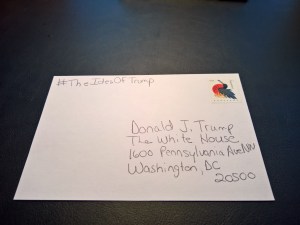 #TheIdesOfTrump
Donald J. Trump
The White House
1600 Pennsylvania Ave NW
Washington, DC
20500